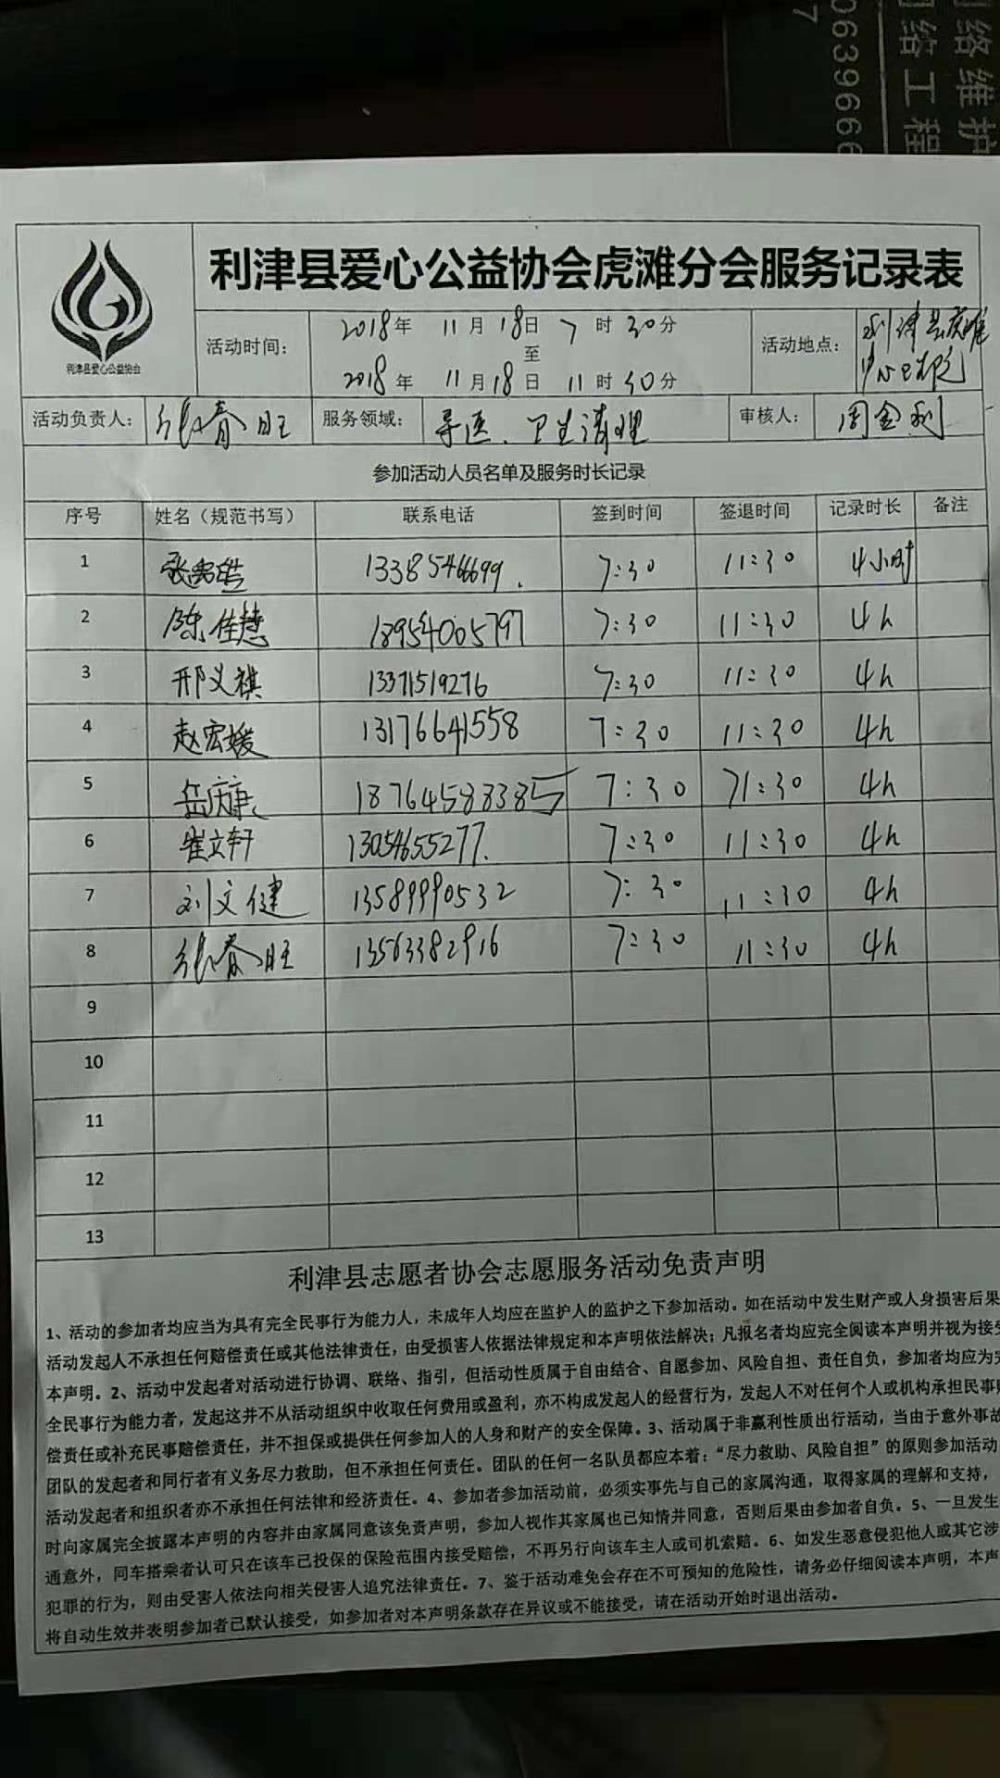 网络维护
网络工程
0639666
7
利津县爱心公益协会
利津县爱心公益协会虎滩分会服务记录表
活动时间：
2018年 11月 18日 7时 30分
至
2018年 11月 18日 11时 30分
活动地点：
利津县虎滩
中心卫生院
活动负责人： 张春旺 服务领域： 导医、卫生清理 审核人： 周金利
参加活动人员名单及服务时长记录
序号 姓名（规范书写） 联系电话 签到时间 签退时间 记录时长 备注
1 13385466699. 7:30 11:30 4小时
2 陈佳慧 18954065797 7:30 11:30 4h
3 邢义祺 13371519276 7:30 11:30 4h
4 赵宏媛 13176641558 7:30 11:30 4h
5 岳庆康 18764583385 7:30 11:30 4h
6 崔文轩 13054655277. 7:30 11:30 4h
7 刘文健 13589990532 7:30 11:30 4h
8 张春旺 13563382916 7:30 11:30 4h
9
10
11
12
13
利津县志愿者协会志愿服务活动免责声明
1、活动的参加者均应当为具有完全民事行为能力人，未成年人均应在监护人的监护之下参加活动。如在活动中发生财产或人身损害后果
活动发起人不承担任何赔偿责任或其他法律责任，由受损害人依据法律规定和本声明依法解决；凡报名者均应完全阅读本声明并视为接受
本声明。2、活动中发起者对活动进行协调、联络、指引，但活动性质属于自由结合、自愿参加、风险自担、责任自负，参加者均应为完
全民事行为能力者，发起这并不从活动组织中收取任何费用或盈利，亦不构成发起人的经营行为，发起人不对任何个人或机构承担民事赔
偿责任或补充民事赔偿责任，并不担保或提供任何参加人的人身和财产的安全保障。3、活动属于非赢利性质出行活动，当由于意外事故
团队的发起者和同行者有义务尽力救助，但不承担任何责任。团队的任何一名队员都应本着：“尽力救助、风险自担”的原则参加活动
活动发起者和组织者亦不承担任何法律和经济责任。4、参加者参加活动前，必须实事先与自己的家属沟通，取得家属的理解和支持，
时向家属完全披露本声明的内容并由家属同意该免责声明，参加人视作其家属也已知情并同意，否则后果由参加者自负。5、一旦发生
通意外，同车搭乘者认可只在该车已投保的保险范围内接受赔偿，不再另行向该车主人或司机索赔。6、如发生恶意侵犯他人或其它涉
犯罪的行为，则由受害人依法向相关侵害人追究法律责任。7、鉴于活动难免会存在不可预知的危险性，请务必仔细阅读本声明，本声
将自动生效并表明参加者已默认接受，如参加者对本声明条款存在异议或不能接受，请在活动开始时退出活动。